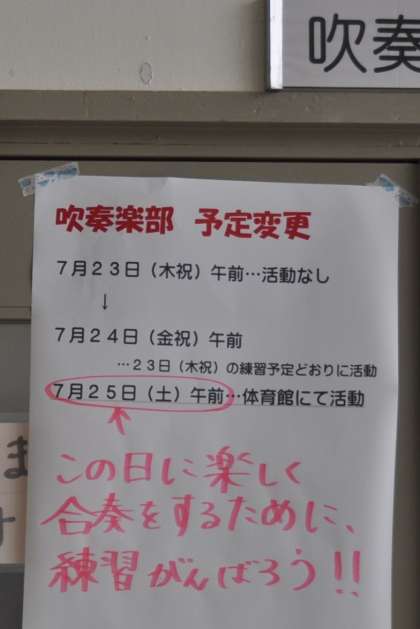 吹奏
吹奏楽部 予定変更
７月２３日（木祝）午前…活動なし
↓
７月２４日（金祝）午前
…２３日（木祝）の練習予定どおりに活動
７月２５日（土）午前…体育館にて活動
この日に楽しく
合奏をするために、
練習がんばろう!!
ま